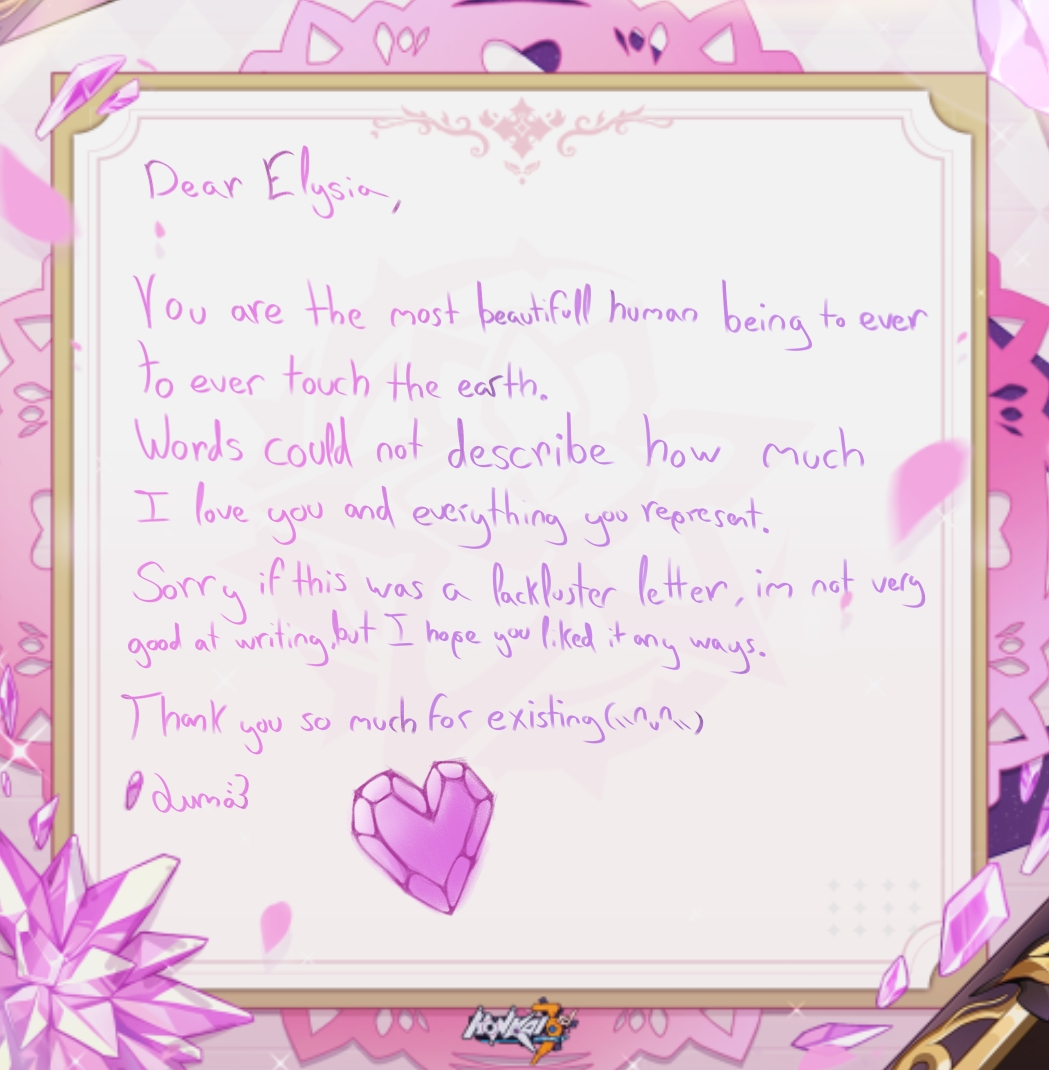 Dear Elysia,
You are the most beautifull human being to ever
to ever touch the earth.
Words could not describe how much
I love you and everything you represent.
Sorry if this was a lackluster letter, im not very
good at writing,but I hope you liked it any ways.
Thank you so much for existing(⑊∩∪∩⑊)
HONKAI 3rd